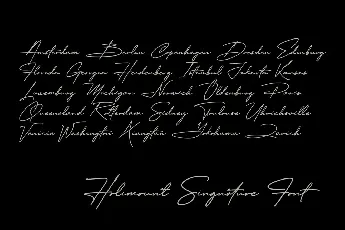 Amsterdam Berlin Copenhagen Dresden Edinburg
Florida Georgia Heidenberg Istanbul Jakarta Kansas
Luxemburg Michigan Norwich Oldenburg Paris
Queensland Rotterdam Sidney Toulouse Uhrichsville
Venizia Washington Xiangtan Yokohama Zurich
Holimount Singnature Font